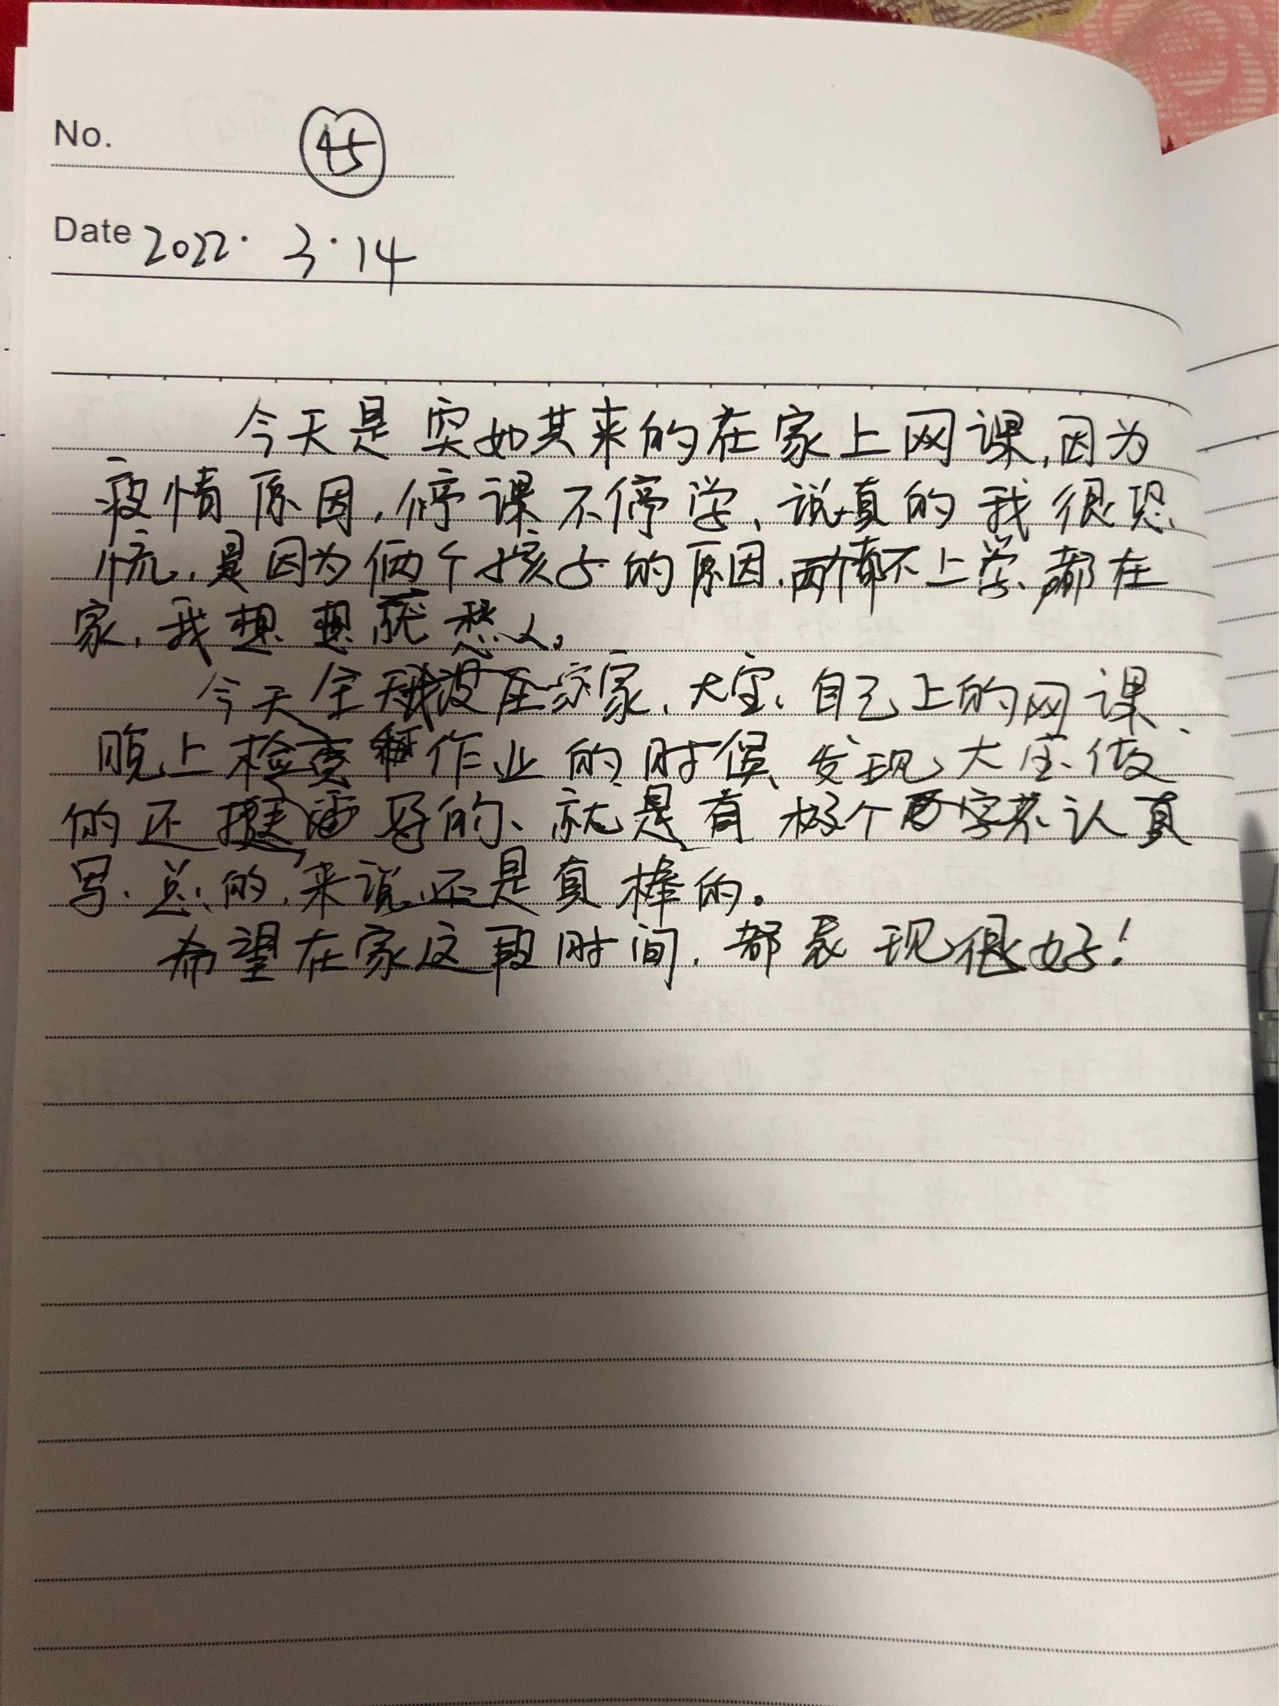 No. 45
Date 2022. 3.14
今天是突如其来的在家上网课,因为
疫情原因,停课不停学、说真的我很恐
慌,是因为俩个孩子的原因,两个都不上学、都在
家,我想想就愁人。
今天全天我没在家、大宝、自己上的网课、
晚上检查作业的时候、发现大宝做
的还挺好的、就是有极个字不认真
写、总的来说还是真棒的。
希望在家这段时间,都表现很好!